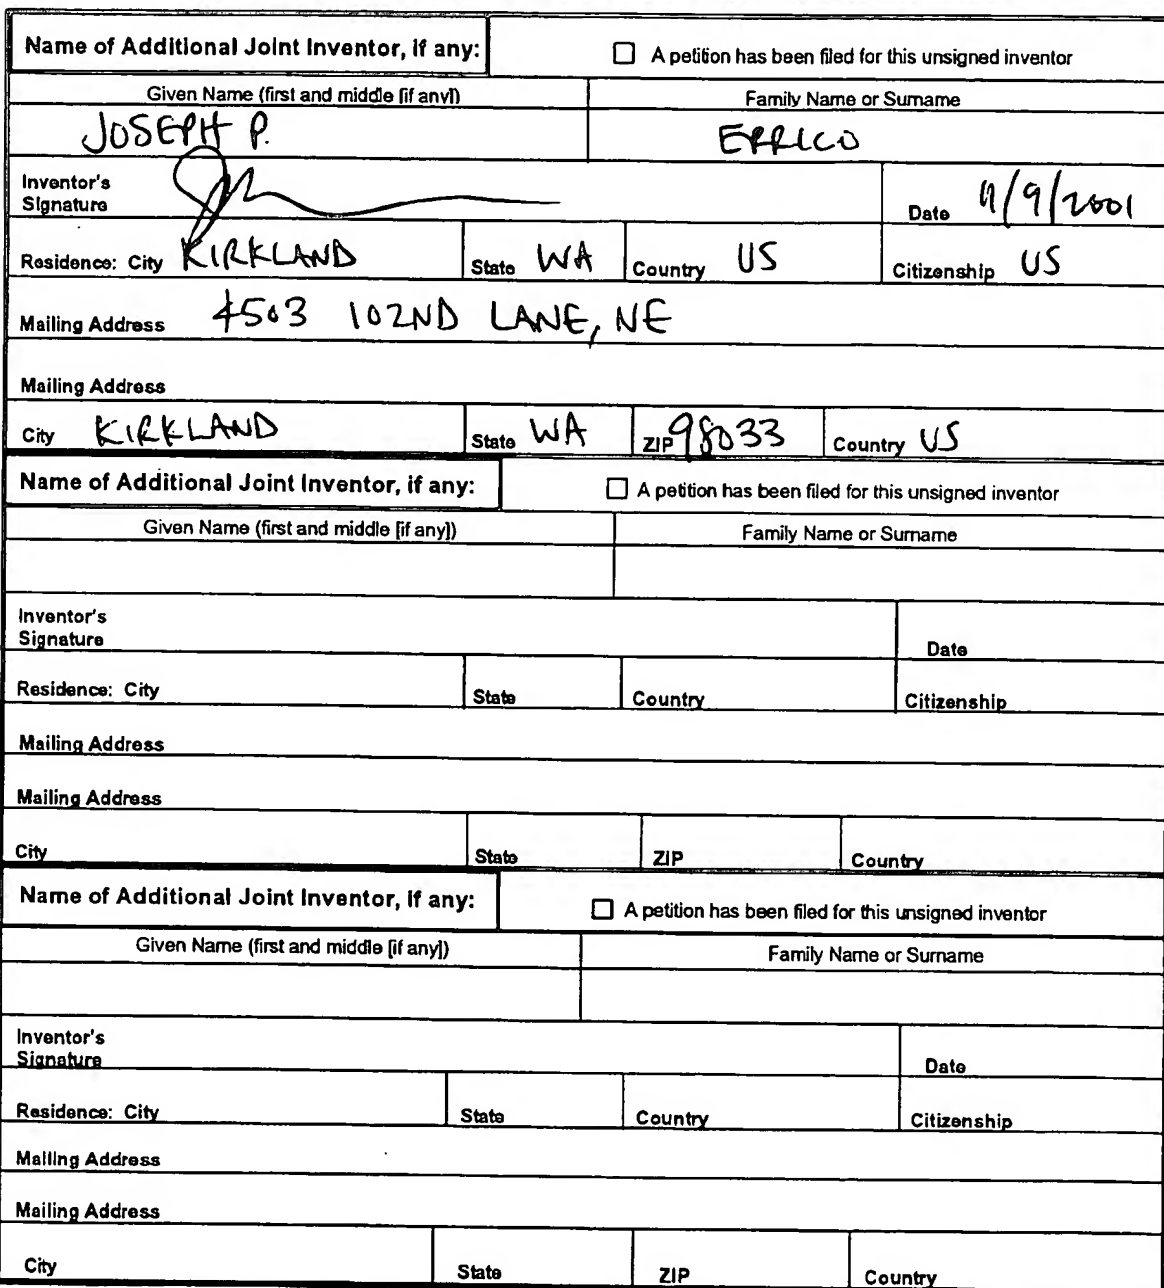 Name of Additional Joint Inventor, if any: ☐ A petition has been filed for this unsigned inventor
Given Name (first and middle [if any]) Family Name or Surname
JOSEPH P. ERRICO
Inventor's
Signature Date 11/9/2001
Residence: City KIRKLAND State WA Country US Citizenship US
Mailing Address 4503 102ND LANE, NE
Mailing Address
City KIRKLAND State WA ZIP 98033 Country US
Name of Additional Joint Inventor, if any: ☐ A petition has been filed for this unsigned inventor
Given Name (first and middle [if any]) Family Name or Surname
Inventor's
Signature Date
Residence: City State Country Citizenship
Mailing Address
Mailing Address
City State ZIP Country
Name of Additional Joint Inventor, if any: ☐ A petition has been filed for this unsigned inventor
Given Name (first and middle [if any]) Family Name or Surname
Inventor's
Signature Date
Residence: City State Country Citizenship
Mailing Address
Mailing Address
City State ZIP Country